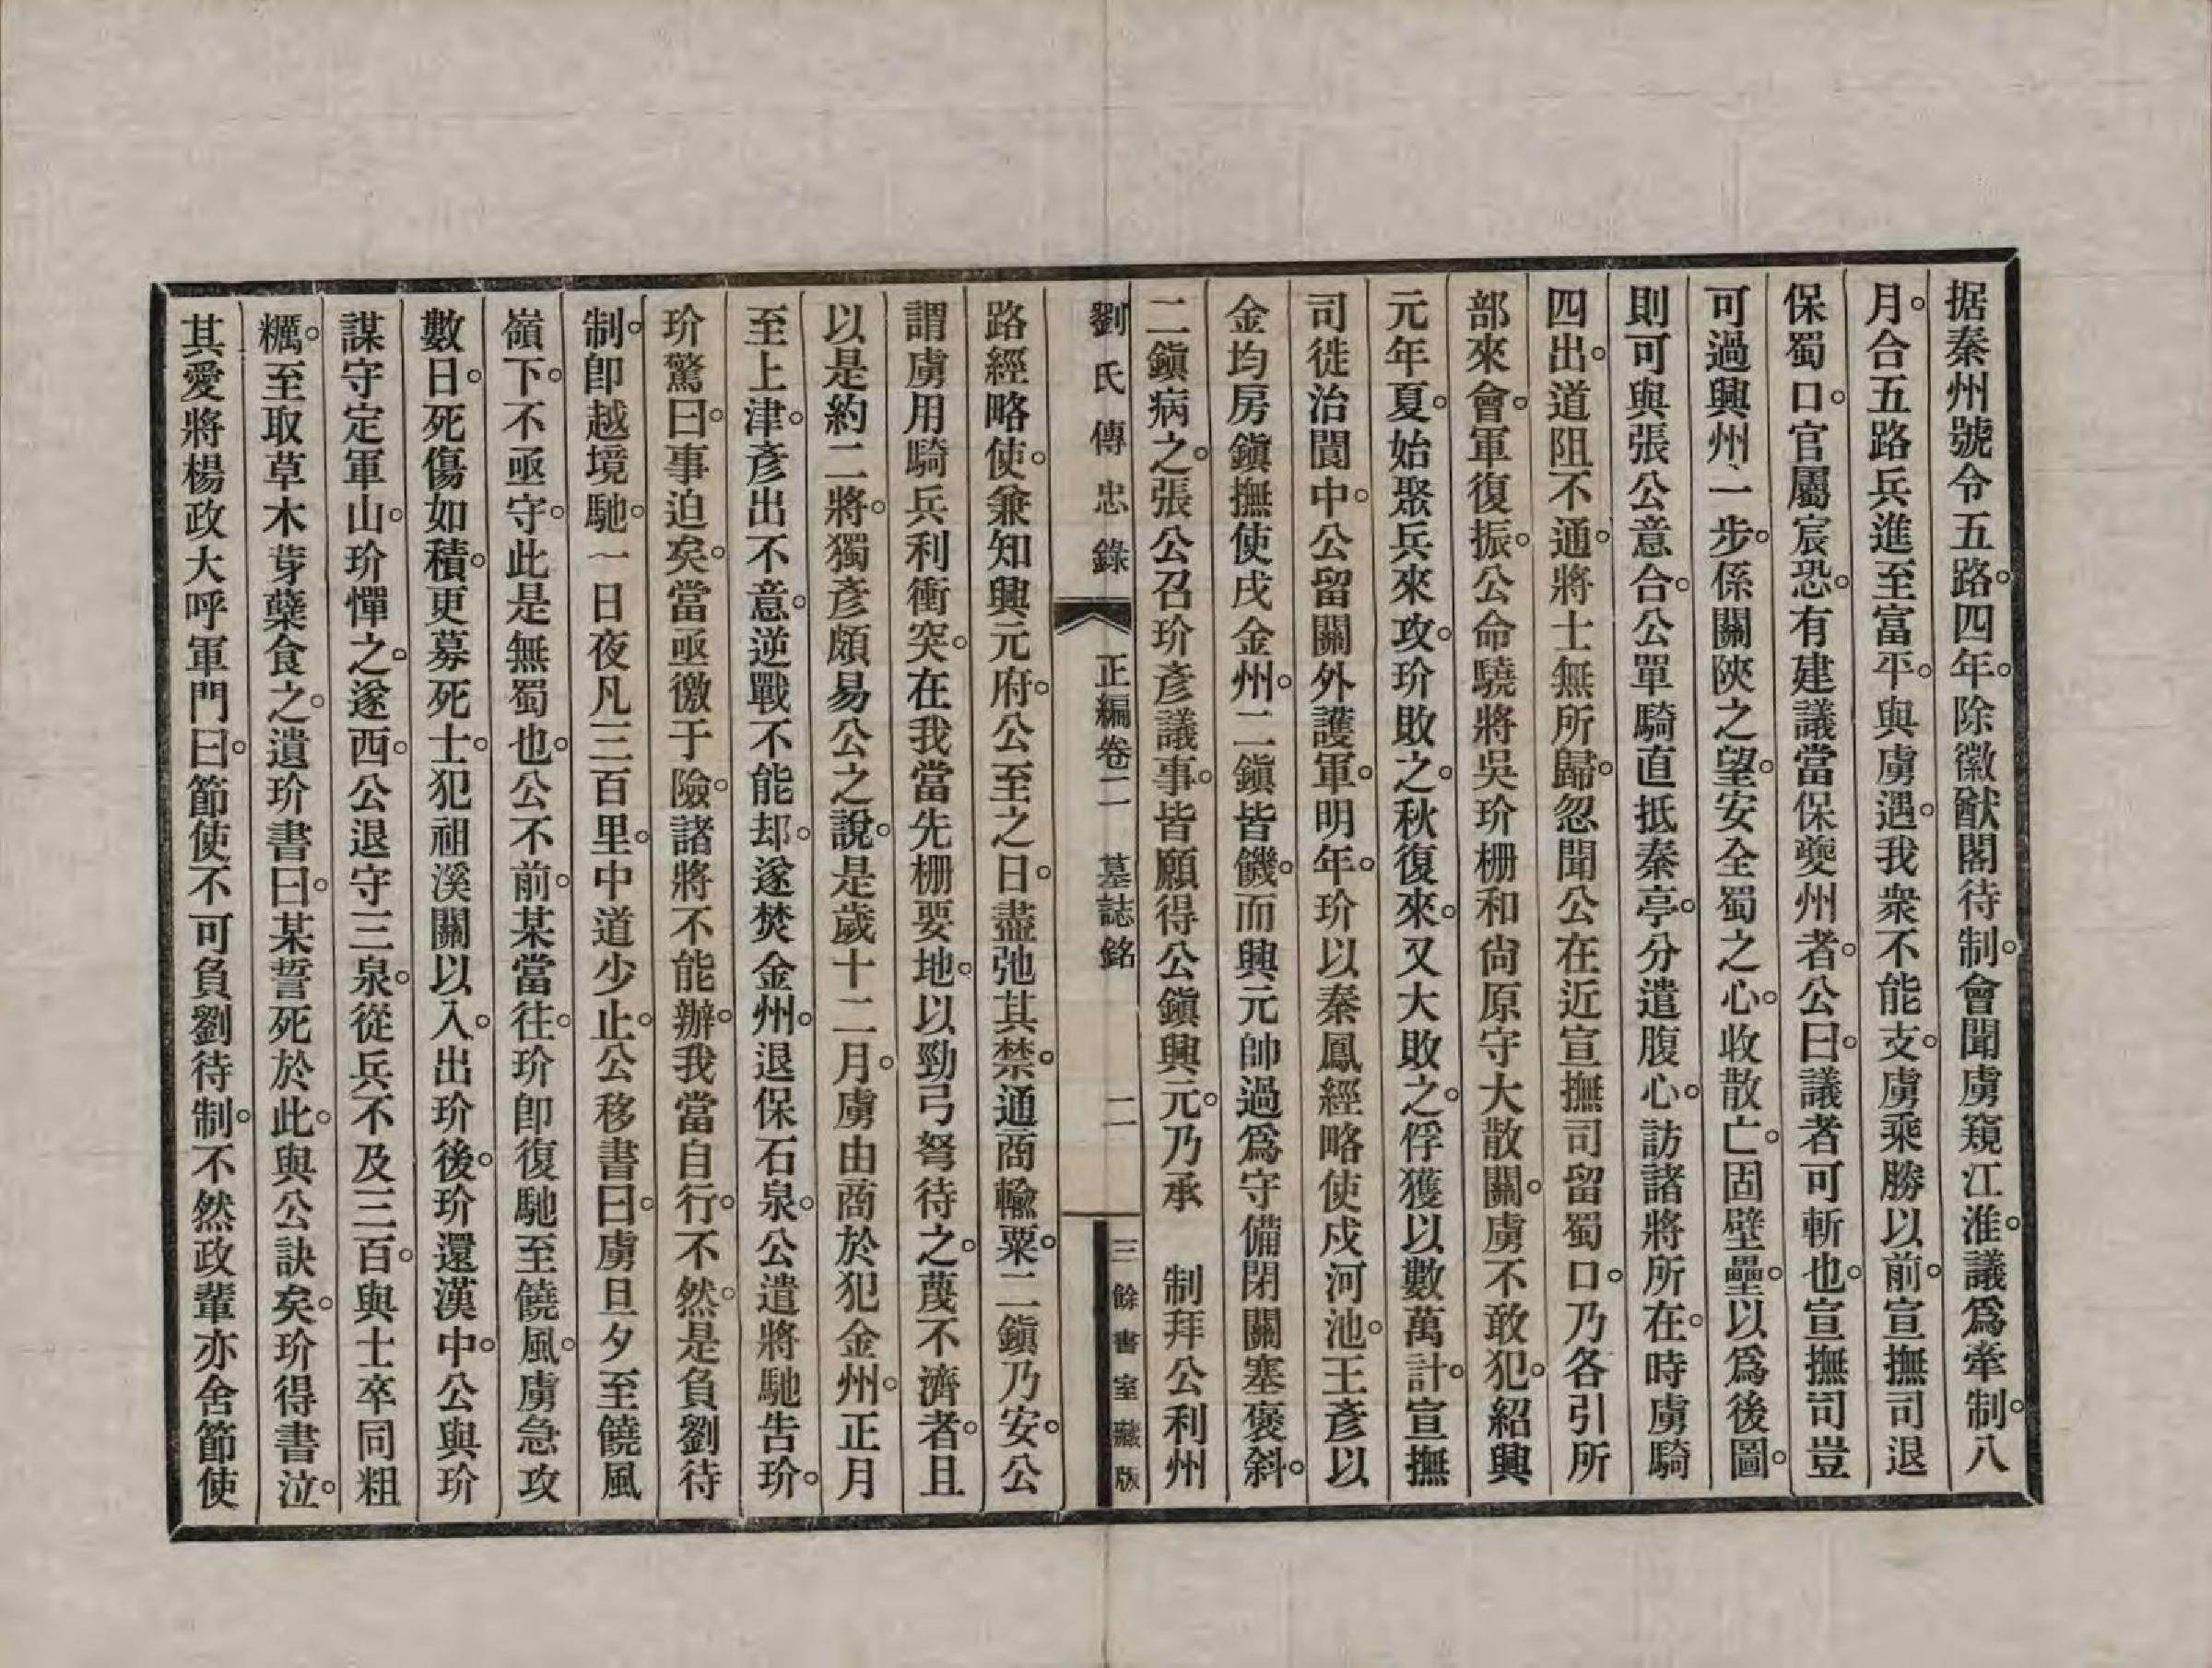 据秦州號令五路。四年。除徽猷閣待制。會聞虜窺江淮。議爲牽制。八
月。合五路兵進至富平。與虜遇。我衆不能支。虜乘勝以前。宣撫司退
保蜀口。官屬宸恐。有建議當保夔州者。公曰。議者可斬也。宣撫司豈
可過興州一步。係關陝之望。安全蜀之心。收散亡。固壁壘。以爲後圖。
則可與張公意合。公單騎直抵秦亭。分遣腹心。訪諸將所在。時虜騎
四出。道阻不通。將士無所歸。忽聞公在近宣撫司留蜀口。乃各引所
部來會。軍復振。公命驍將吳玠柵和尙原守大散關。虜不敢犯。紹興
元年夏。始聚兵來攻。玠敗之。秋復來。又大敗之。俘獲以數萬計。宣撫
司徙治閬中。公留關外護軍。明年。玠以秦鳳經略使戍河池。王彥以
金均房鎭撫使戍金州。二鎭皆饑。而興元帥過爲守備閉關塞褒斜。
二鎭病之。張公召玠彥議事。皆願得公鎭興元。乃承　制拜公利州
劉氏傳忠錄　正編卷二　墓誌銘　二　三餘書室藏版
路經略使。兼知興元府。公至之日。盡弛其禁。通商輸粟。二鎭乃安。公
謂虜用騎兵利衝突。在我當先柵要地。以勁弓弩待之。蔑不濟者。且
以是約二將。獨彥頗易公之說。是歲十二月。虜由商於犯金州。正月
至上津。彥出不意。逆戰不能却。遂焚金州。退保石泉。公遣將馳告玠。
玠驚曰。事迫矣。當亟徼于險。諸將不能辦。我當自行。不然。是負劉待
制。卽越境馳。一日夜凡三百里。中道少止。公移書曰。虜旦夕至饒風
嶺下。不亟守。此是無蜀也。公不前。某當往。玠卽復馳至饒風。虜急攻
數日。死傷如積。更募死士。犯祖溪關以入。出玠後。玠還漢中。公與玠
謀守定軍山。玠憚之。遂西。公退守三泉。從兵不及三百。與士卒同粗
糲。至取草木芽蘖食之。遺玠書曰。某誓死於此。與公訣矣。玠得書泣。
其愛將楊政大呼軍門曰。節使不可負劉待制。不然政輩亦舍節使